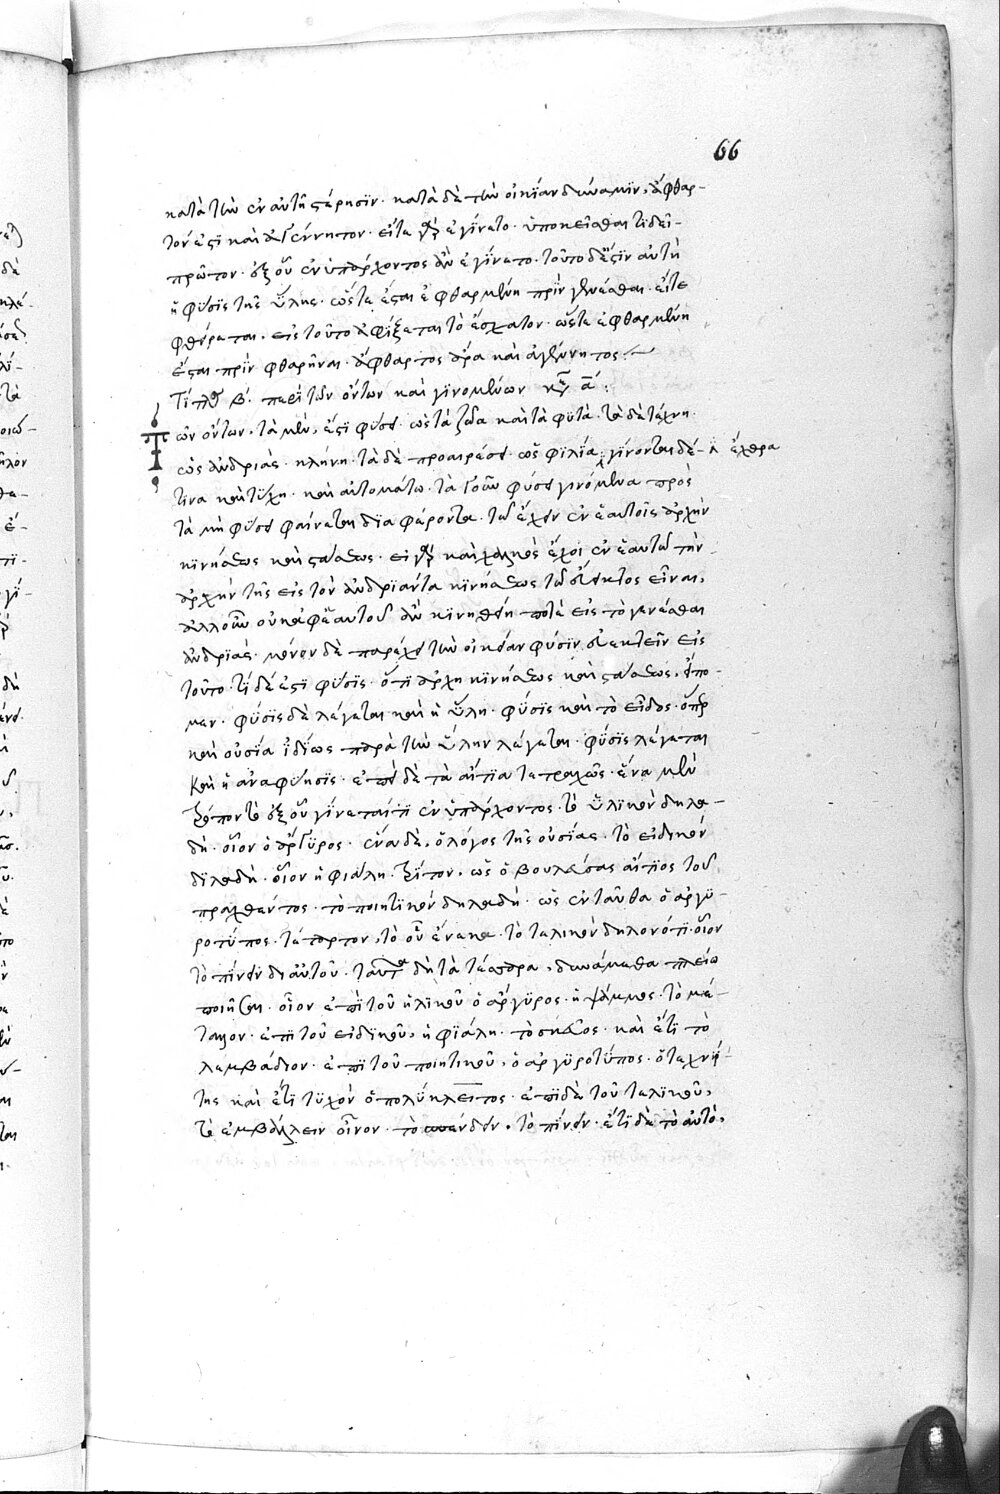 66
κατὰ τὴν ἐν αὐτῆ στέρησϊν· κατὰ δὲ τὴν οἰκείαν δύναμϊν, ἄφθαρ-
τόν ἐστϊ καὶ ἀγέννητον· εἴτε γὰρ ἐγίνετο· ὑποκεῖσθαι τϊ δεῖ-
πρῶτον· ἐξ οὗ ἐνυπάρχοντος ἂν ἐγίνετο· τοῦτο δέ ἐστϊν αὐτὴ
ἡ φύσϊς τῆς ὕλης· ὥστε ἔσται ἐφθαρμένη πρὶν γενέσθαι· εἴτε
φθείρεται· εἰς τοῦτο ἀφίξεται τὸ ἔσχατον· ὥστε ἐφθαρμένη
ἔσται πρὶν φθαρῆναι· ἄφθαρτος ἄρα καὶ ἀγένητος
βʹ· περὶ τῶν ὄντων καὶ γϊνομένων αʹ:
ῶν ὄντων, τὰ μὲν, ἐστϊ φύσει· ὡς τὰ ζῶα καὶ τὰ φϋτά· τὰ δὲ τέχνη
ὡς ἀνδριὰς· κλίνη· τὰ δὲ προαιρέσει· ὡς φϊλία· γίνονται δέ- ἔχθρα
τινα καὶ τύχη· καὶ αὐτομάτω· τὰ γοῦν φύσει γινόμενα πρὸς
τὰ μὴ φύσει φαίνεται δϊαφέροντα· τῶ ἔχειν ἐν ἑαυτοῖς ἀρχὴν
κϊνήσεως καὶ στάσεως· εἰ γὰρ καὶ χαλκὸς ἔχει ἐν ἑαυτῶ τὴν
ἀρχὴν τῆς εἰς τὸν ἀνδρϊάντα κϊνήσεως τῶ εἶναι,
ἀλλ' οὖν οὐκ ἀφ' ἑαυτοῦ ἂν κϊνηθείη ποτὲ εἰς τὸ γενέσθαι
ἀνδρϊάς· μόνον δὲ παρέχει τὴν οἰκείαν φύσϊν εἰς
τοῦτο· τί δέ ἐστϊ φύσϊς· ὅτϊ ἀρχὴ κϊνήσεως καὶ στάσεως, εἴπο-
μεν· φύσϊς δὲ λέγεται καὶ ἡ ὕλη· φύσϊς καὶ τὸ εἶδος· ὅπερ
καὶ οὐσία ἰδίως παρὰ τὴν ὕλην λέγεται· φύσϊς λέγεται
καὶ ἡ ἀναφύησϊς· ἐπεὶ δὲ τὰ αἴτϊα τετραχῶς· ἕνα μὲν
τρόπον τὸ ἐξ οὗ γίνεταί τϊ ἐνυπάρχοντος· τὸ ὑλϊκὸν δηλα-
δή· οἷον ὁ ἄργϋρος· ἕνα δὲ, ὁ λόγος τῆς οὐσίας· τὸ εἰδικὸν
δϊλαδή· οἷον ἡ φιάλη· τρίτον, ὡς ὁ βουλεύσας αἴτϊος τοῦ
πραχθέντος· τὸ ποιητϊκὸν δηλαδή· ὡς ἐνταῦθα ὁ ἀργϋ-
ροτύπος· τέταρτον, τὸ οὗ ἕνεκα· τὸ τελικὸν δηλονότϊ· οἷον
τὸ πίνειν δι' αὐτοῦ· δὴ τὰ τέσσαρα, δυνάμεθα πλείω
ποιῆσαι· οἷον ἐπὶ τοῦ ὑλϊκοῦ ὁ ἄργϋρος· ἡ ψάμμος· τὸ μέ-
ταλλον· ἐπὶ τοῦ εἰδϊκοῦ, ἡ φϊάλη· τὸ σκεῦος· καὶ ἔτϊ τὸ
λεμβάδιον· ἐπϊ τοῦ ποιητικοῦ, ὁ ἀργϋροτύπος· ὁ τεχνί-
της καὶ ἔτϊ τϋχὸν ὁ πολύκλειτος· ἐπϊ δὲ τοῦ τελϊκοῦ,
τὸ ἐμβάλλειν οἶνον· τὸ· τὸ πίνειν· ἔτϊ δὲ τὸ αὐτὸ,